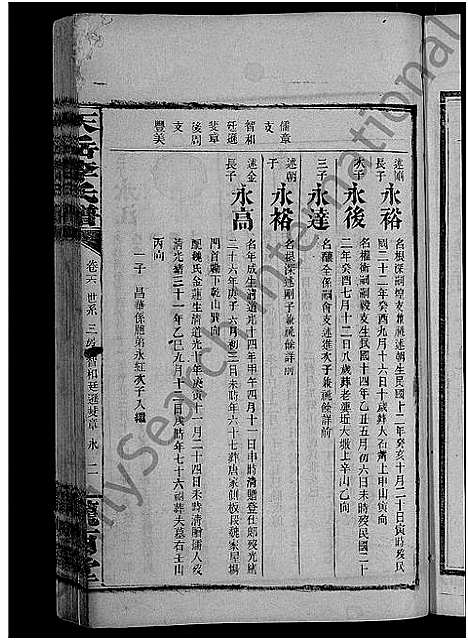 儒章
支
智和
廷暹
斐章
後周
支
豐美
述朝
長子
永裕
名根深嗣煌支兼祧述朝生民國十二年癸亥十月二十日寅時殁民
國二十二年癸酉九月十六日十歲葬人石嘴上申山寅向
次子
永後
名權衛嗣嗣毅支生民國十四年乙丑五月初六日未時殁民國二十
二年癸酉七月十二日八歲葬老蓮坵大墈上辛山乙向
三子
永達
名釀全係嗣會支述進次子兼祧餘詳前
述朝
子
永裕
名根深述剛子兼祧餘詳前
述金
長子
永高
名年成生清道光十四年甲午四月十一日申時清贈登仕郎殁光緒
二十六年庚子六月初三日未時年六十七葬唐家側板段魏家屋場
門首壠下乾山巽向
配魏氏金蓮生清道光十年庚寅十一月二十四日未時清贈孺人殁
清光緒三十一年乙巳九月十三日戌時年七十六祔葬夫墓右壬山
丙向
一子 昌華係應弟永紅次子入繼
天岳李氏譜
卷六 世系 三房智和廷暹斐章 永 二
隴西堂
MySearch International